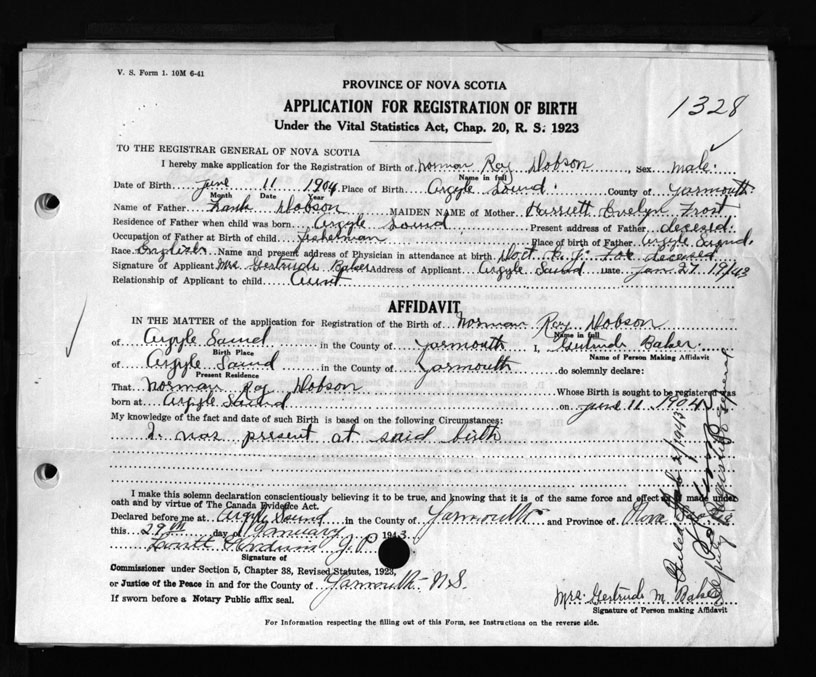 V. S. Form 1. 10M 6-41
PROVINCE OF NOVA SCOTIA
1328
APPLICATION FOR REGISTRATION OF BIRTH
Under the Vital Statistics Act, Chap. 20, R. S. 1923
TO THE REGISTRAR GENERAL OF NOVA SCOTIA
I hereby make application for the Registration of Birth of Norman Ray Dobson, Sex Male.
Name in full
Date of Birth June 11 1904 Place of Birth Argyle Sound. County of Yarmouth
Month Date Year
Name of Father Frank Dobson MAIDEN NAME of Mother Harriett Evelyn Frost
Residence of Father when child was born Argyle Sound Present address of Father decesed.
Occupation of Father at Birth of child fisherman Place of birth of Father Argyle Sound.
Race English Name and present address of Physician in attendance at birth Doct. Fox deceased
Signature of Applicant Mrs Gertrude Baker Address of Applicant Argyle Sound Date Jan. 27 1943
Relationship of Applicant to child Aunt
AFFIDAVIT
IN THE MATTER of the application for Registration of the Birth of Norman Ray Dobson
Name in full
of Argyle Sound in the County of Yarmouth I, Gertrude Baker.
Birth Place Name of Person Making Affidavit
of Argyle Sound in the County of Yarmouth do solemnly declare:
Present Residence
That Norman Ray Dobson Whose Birth is sought to be registered was
born at Argyle Sound on June 11 1904
My knowledge of the fact and date of such Birth is based on the following Circumstances:
I was present at said birth
I make this solemn declaration conscientiously believing it to be true, and knowing that it is of the same force and effect as if made under
oath and by virtue of The Canada Evidence Act.
Declared before me at Argyle Sound in the County of Yarmouth and Province of Nova
this 29th day of January 1943.
J. P.
Signature of
Commissioner under Section 5, Chapter 38, Revised Statutes, 1923,
or Justice of the Peace in and for the County of Yarmouth N.S.
If sworn before a Notary Public affix seal.
Mrs. Gertrude M. Baker
Signature of Person making Affidavit
For Information respecting the filling out of this Form, see Instructions on the reverse side.
Filed Feb 2/1943
Deputy Registrar General